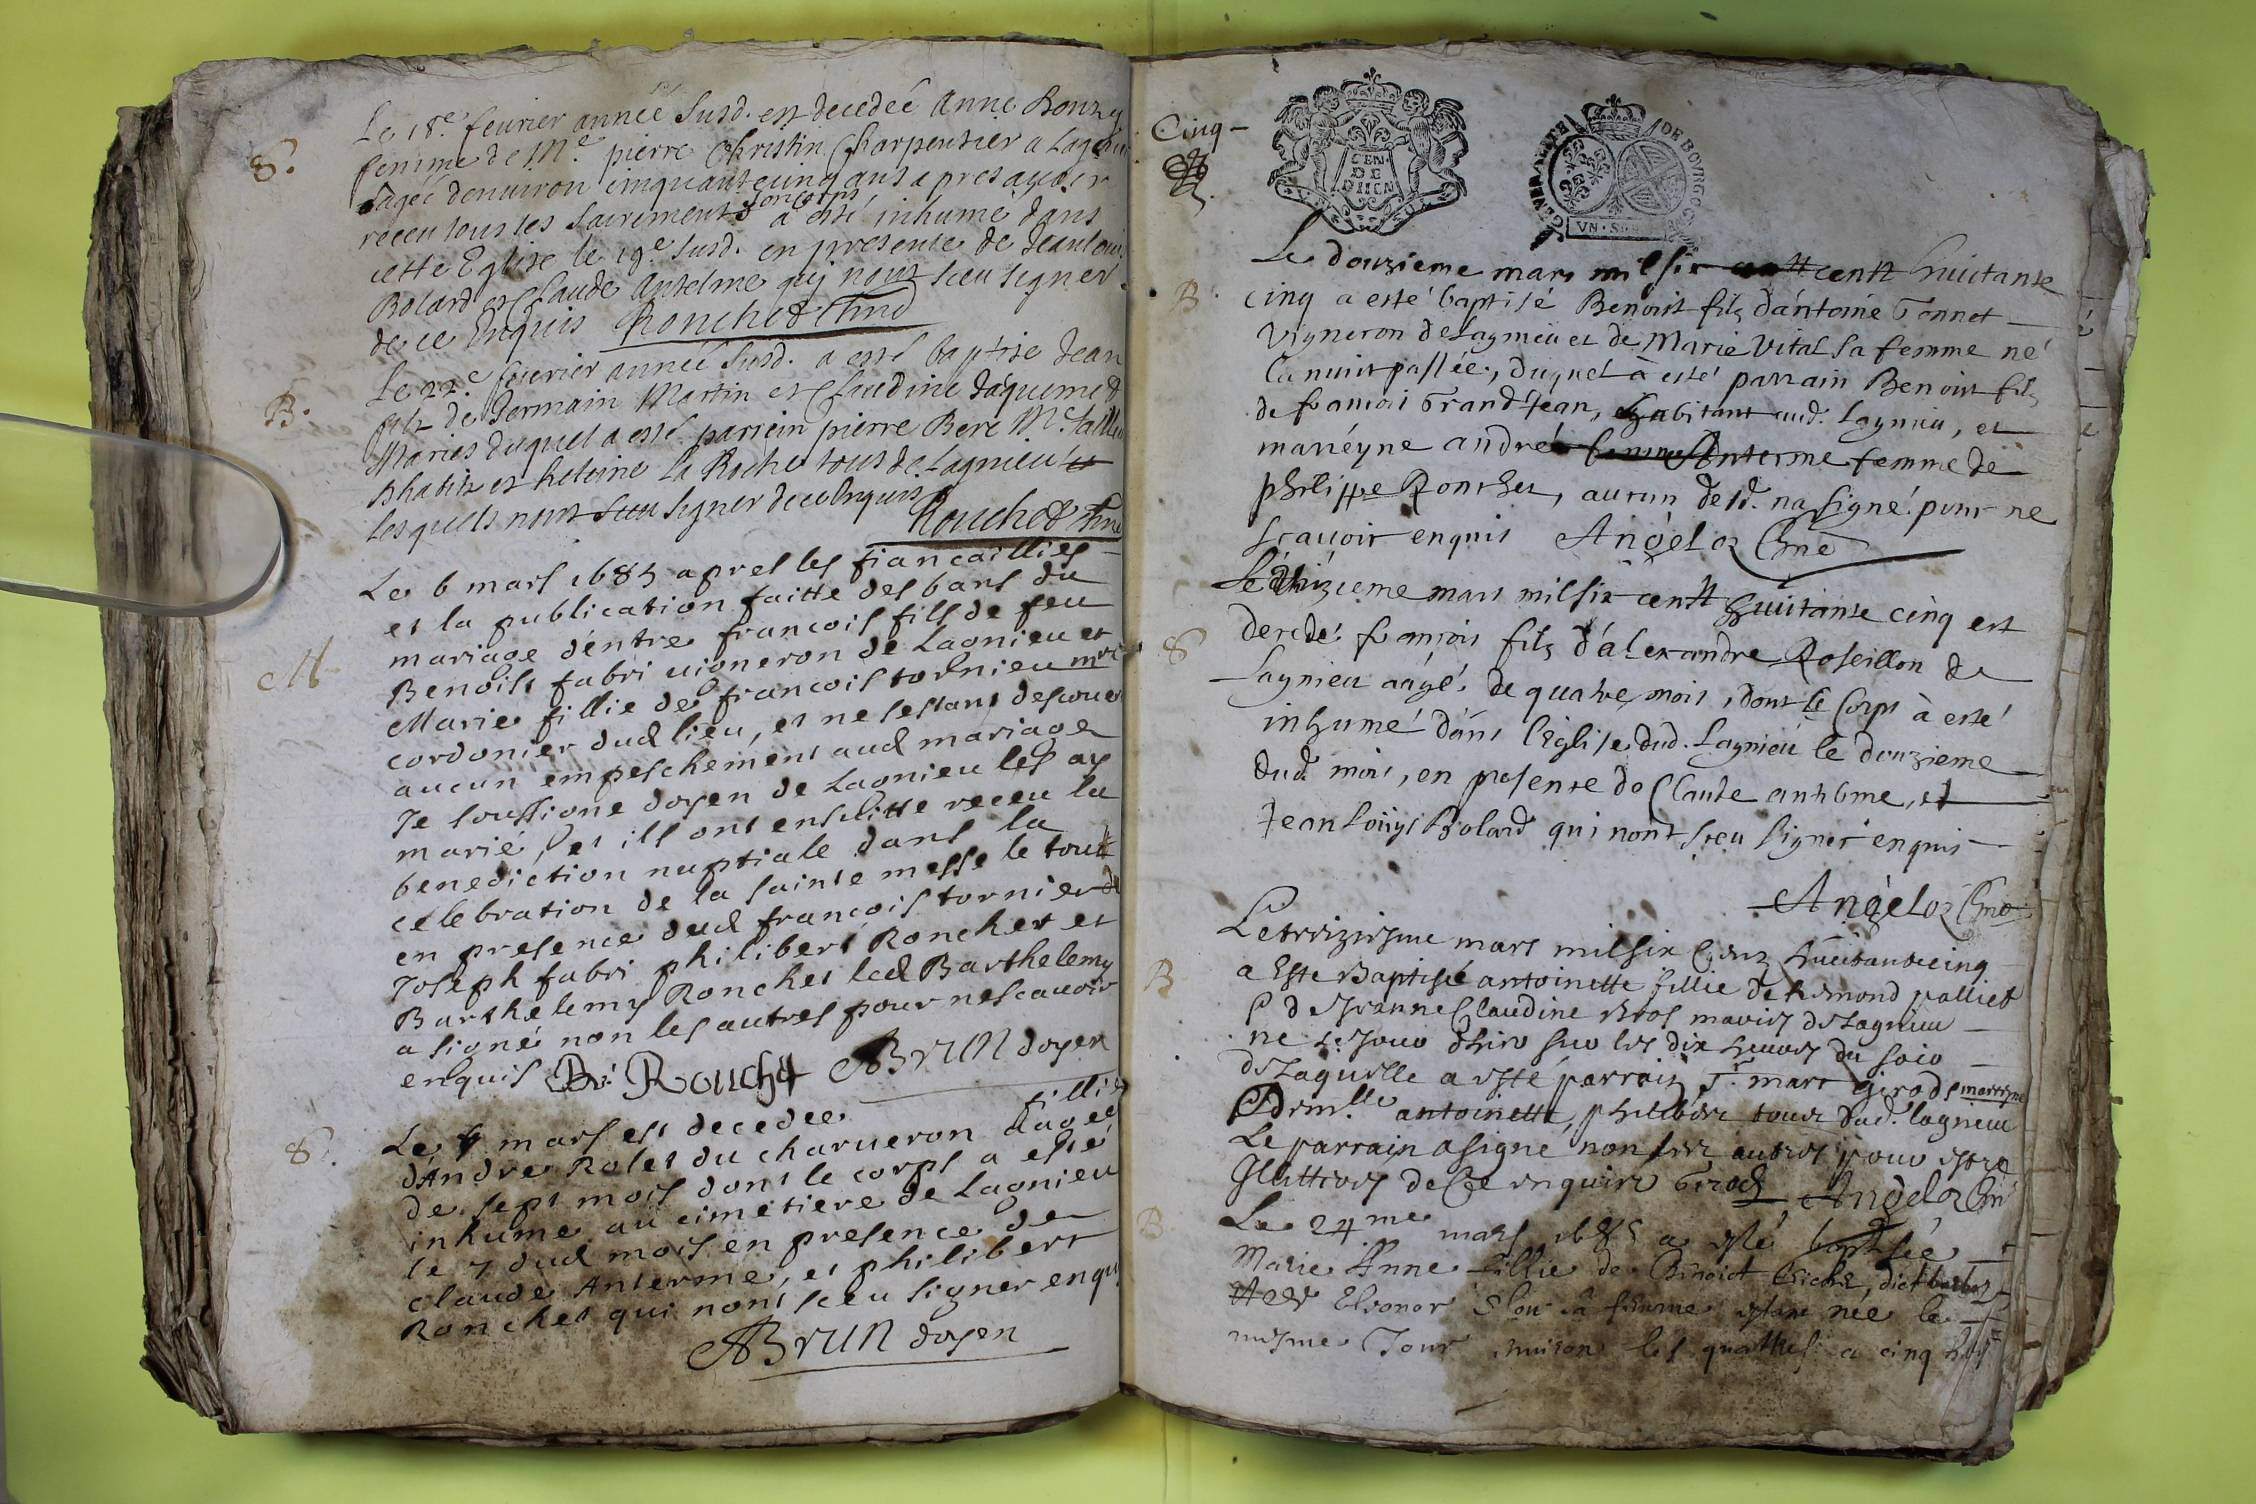 Le 18.e feurier année Susd. est decedeé Anne
8.
femme de M.e pierre Christin Charpentier a
agée denuiron cinquantecinq ans apres auoir
receu tous les sacrements son corps a esté inhumé dans
cette Eglise le 19.e susd. en presence de Jean louis
Bolard et Claude Antelme qui nont sceu signer
de ce Enquis Ronchet
Le 22.e feurier anneé Susd. a esté baptise Jean
B.
filz de Germain Martin et Claudine
Mariés duquel a esté parrein pierre Bere M.e
et la Roche tous de Lagnieu
lesquels nont sceu signer de ce Enquis
Ronchet
Le 6 mars 1685 apres les fiancaillies
et la publication faitte des bans du
mariage déntre francois fils de feu
M
Benoist fabri uigneron de Lagnieu et
Marie fillie de francois tornieu mre
cordonier dud lieu, et ne sestant descouert
aucun empeschement aud mariage
Je soussigne doyen de Lagnieu les ay
marié, et ils ont ensuitte receu la
benediction nuptiale dans la
celebration de la sainte messe le tout
en presence dud francois tornier
Joseph fabri philibert Ronchet et
Barthelemy Ronchet led Barthelemy
a signé non les autres pour ne scauoir
enquis Be. Ronchet ABrun doyen
8.
Le 4 mars est decedee fillie
dAndre Rolet du charueron aagée
de sept mois dont le corps a esté
inhume au cimetiere de Lagnieu
le 7 dud mois en presence de
claude Anterme, et philibert
Ronchet qui nont sceu signer enquis
ABrun doyen
Cinq
GEN. DE DIION
GENERALITE DE BOVRGOGNE
VN·S
Le douzieme mars mil six cent huitante
B.
cinq a esté baptisé Benoist fils dántoine Tonnet
Vigneron de Lagnieu et de Marie Vital sa femme né
la nuit passée, duquel à esté parrain Benoist fils
de francois Grand Jean, habitant aud. Lagnieu, et
marréyne andreé Anterme femme de
philippe Ronchet, aucun desd. na signé pour ne
scauoir enquis Angeloz
Le mars mil six cent huitante cinq est
8
decedé francois fils d'alexandre Roseillon de
Lagnieu aagé de quatre mois, dont le corps à esté
inhumé dans l'Eglise dud. Lagnieu le douzieme
dud. mois, en presence de Claude anthelme, et
Jean Louys Bolard qui nont sceu signer enquis
Angeloz
Le treiziesme mars mil six Centz huictante cinq
B
a Este Baptisée antoinette fillie de palliet
Claudine Bros mariés de Lagnieu
né Le Jour dhier sur les dix heures du soir
de Laquelle a esté parrain Sr. marc Girod marreyne
dem.lle antoinette, philibert tous dud. lagnieu
Le parrain a signé non les autres pour estre
Illettrés de Ce enquis Girod Angeloz
B
Le 24me mars 1685 a esté baptisée
Marie Anne fillie de Benoict
et Eleonor sa femme estant née le
mesme Jour enuiron les quattres a cinq